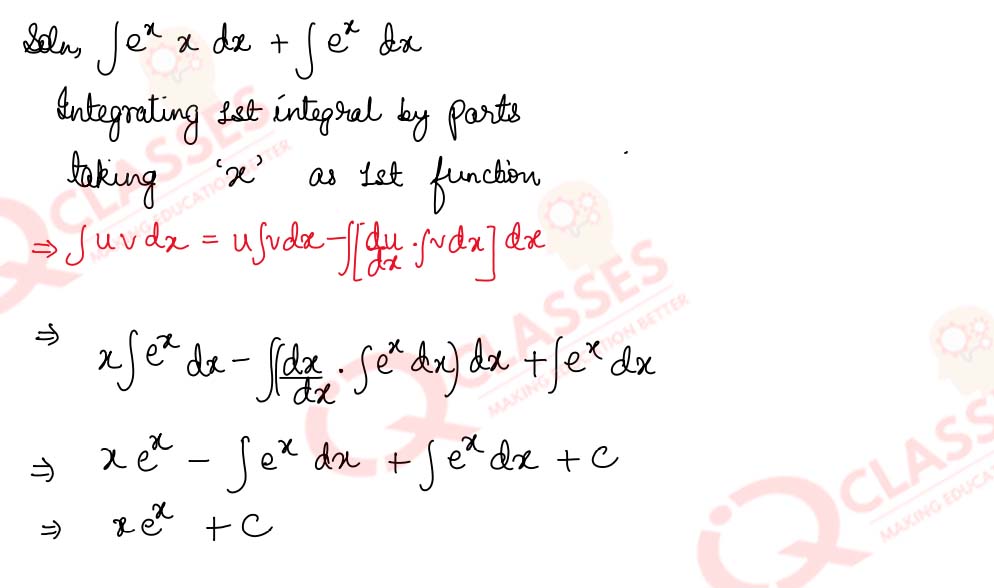 Soln, ∫ eˣ x dx + ∫ eˣ dx
Integrating 1st integral by parts
taking 'x' as 1st function
⇒ ∫ u v dx = u ∫ v dx - ∫ [du/dx · ∫ v dx] dx
⇒ x ∫ eˣ dx - ∫ (dx/dx · ∫ eˣ dx) dx + ∫ eˣ dx
⇒ x eˣ - ∫ eˣ dx + ∫ eˣ dx + C
⇒ x eˣ + C
IQ CLASSES
MAKING EDUCATION BETTER
IQ CLASSES
MAKING EDUCATION BETTER
IQ CLASSES
MAKING EDUCA